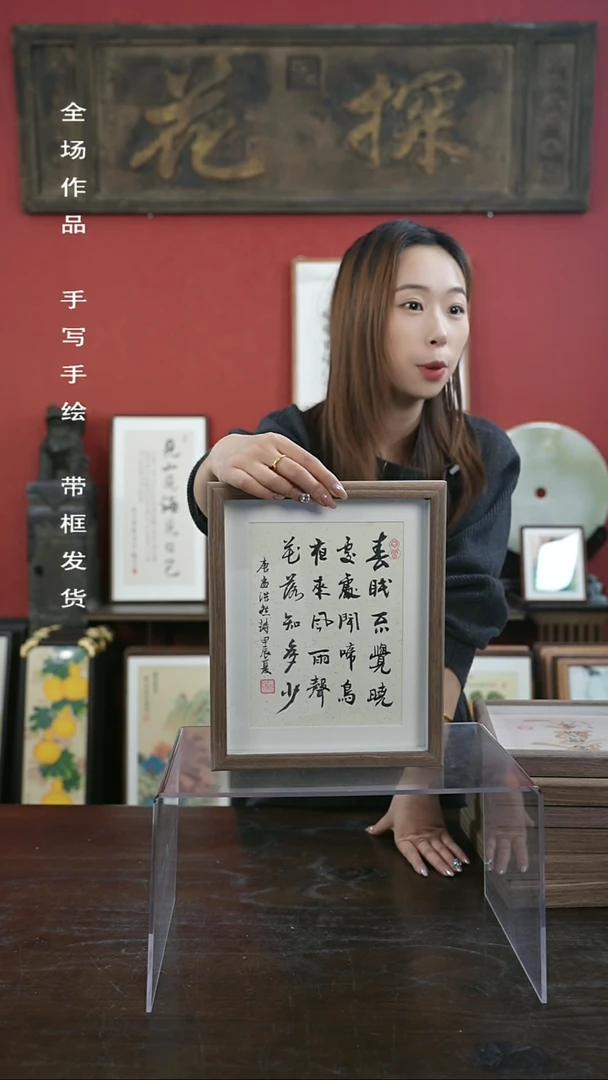 探花
全场作品 手写手绘 带框发货
春眠不覺曉
處處聞啼鳥
夜來风雨聲
花落知多少
唐孟浩然詩甲辰夏
见山见海见自己